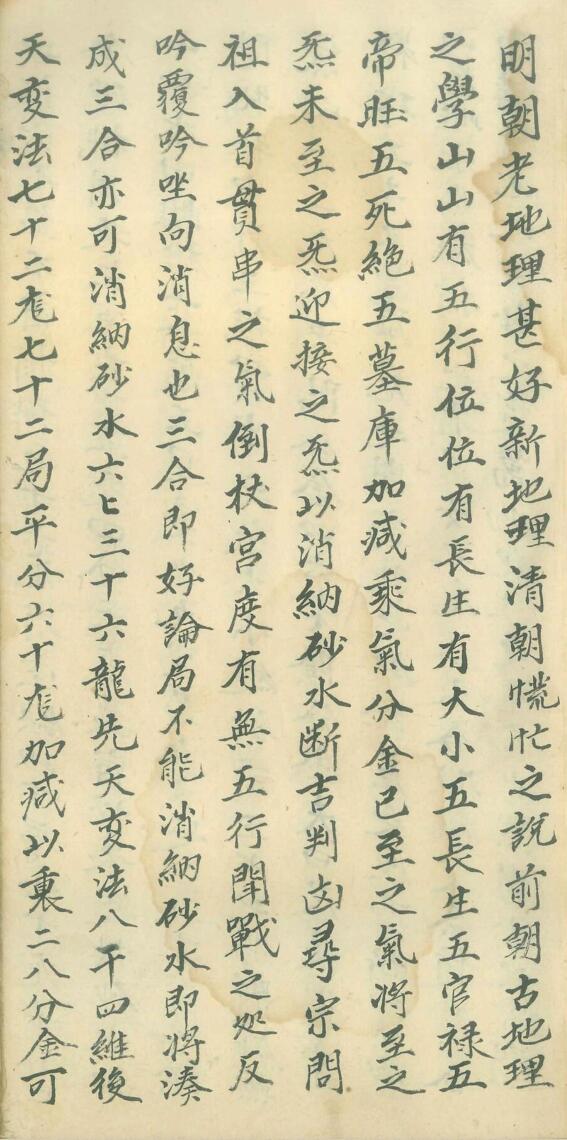 明朝老地理甚好新地理清朝慌忙之説前朝古地理
之學山山有五行位位有長生有大小五長生五官禄五
帝旺五死絶五墓庫加减乘氣分金已至之氣將至之
炁未至之炁迎接之炁以消納砂水断吉判凶尋宗問
祖入首貫串之氣倒杖宮度有無五行鬪戰之処反
吟覆吟坐向消息也三合即好論局不能消納砂水即將湊
成三合亦可消納砂水六七三十六龍先天变法八干四維後
天变法七十二龙七十二局平分六十龙加减以裏二八分金可